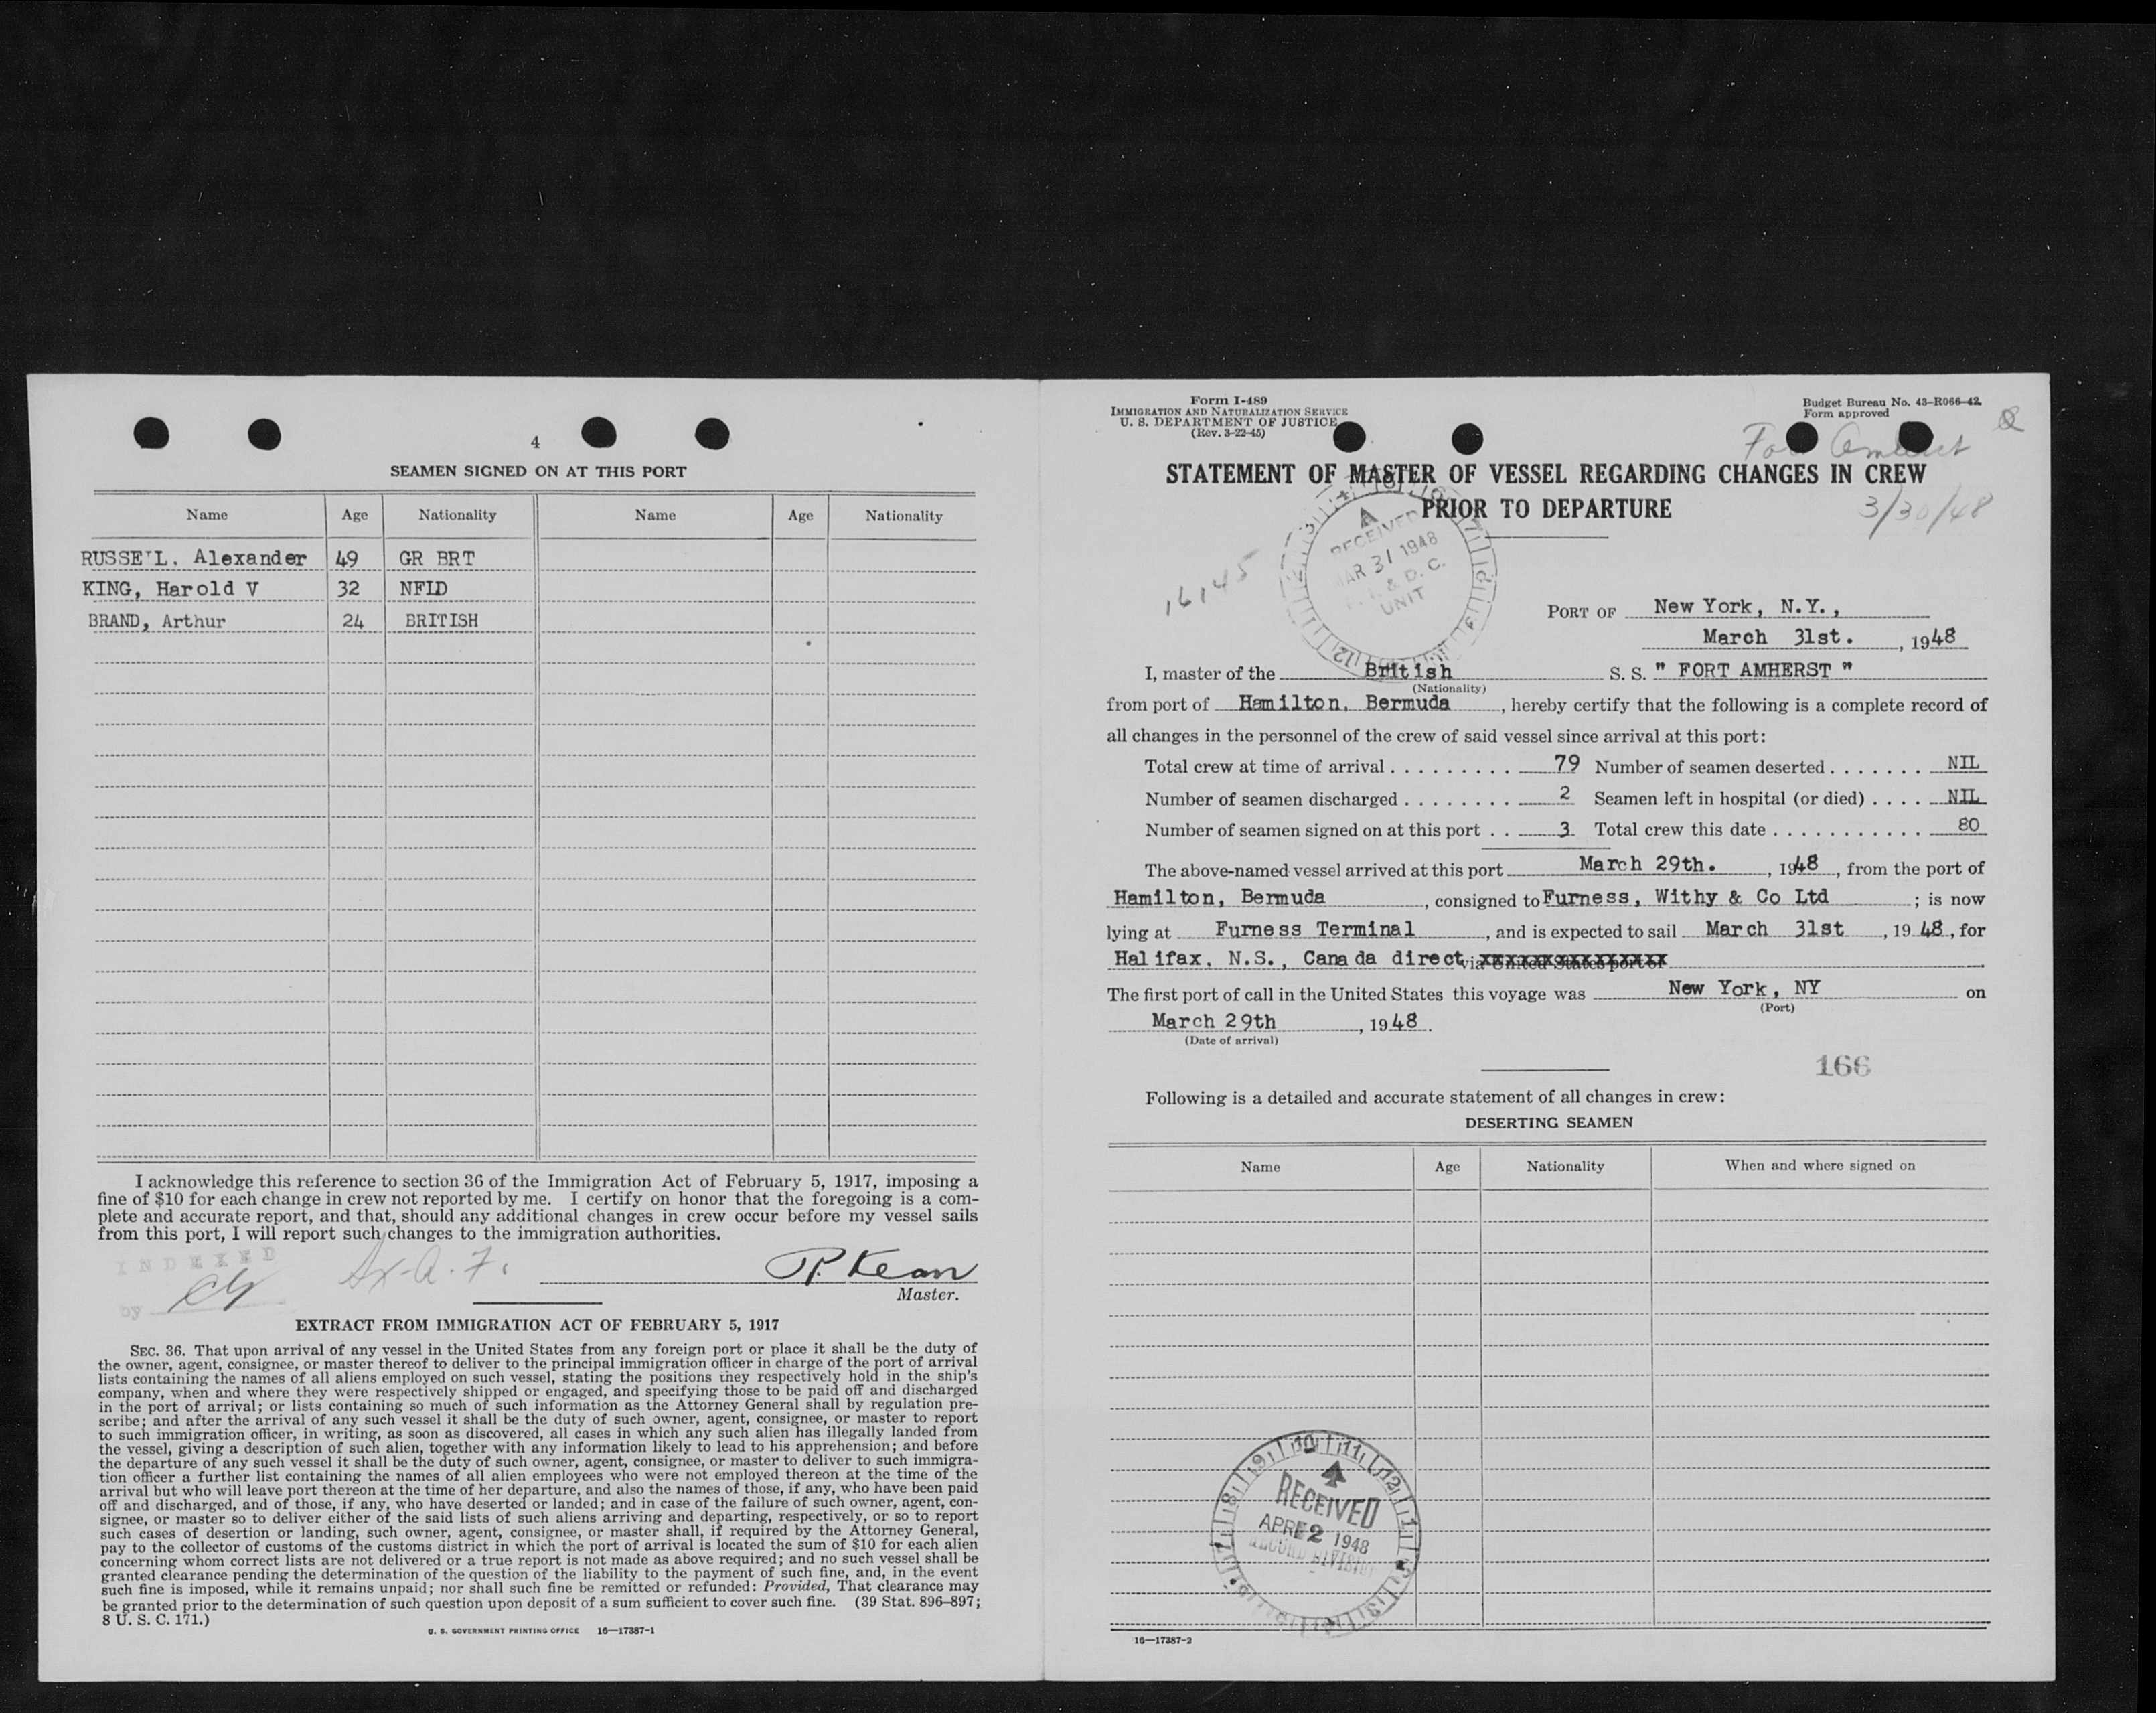 4
SEAMEN SIGNED ON AT THIS PORT
Name Age Nationality Name Age Nationality
RUSSELL, Alexander 49 GR BRT
KING, Harold V 32 NFLD
BRAND, Arthur 24 BRITISH
I acknowledge this reference to section 36 of the Immigration Act of February 5, 1917, imposing a
fine of $10 for each change in crew not reported by me. I certify on honor that the foregoing is a com-
plete and accurate report, and that, should any additional changes in crew occur before my vessel sails
from this port, I will report such changes to the immigration authorities.
INDEXED
by
Kean
Master.
EXTRACT FROM IMMIGRATION ACT OF FEBRUARY 5, 1917
SEC. 36. That upon arrival of any vessel in the United States from any foreign port or place it shall be the duty of
the owner, agent, consignee, or master thereof to deliver to the principal immigration officer in charge of the port of arrival
lists containing the names of all aliens employed on such vessel, stating the positions they respectively hold in the ship's
company, when and where they were respectively shipped or engaged, and specifying those to be paid off and discharged
in the port of arrival; or lists containing so much of such information as the Attorney General shall by regulation pre-
scribe; and after the arrival of any such vessel it shall be the duty of such owner, agent, consignee, or master to report
to such immigration officer, in writing, as soon as discovered, all cases in which any such alien has illegally landed from
the vessel, giving a description of such alien, together with any information likely to lead to his apprehension; and before
the departure of any such vessel it shall be the duty of such owner, agent, consignee, or master to deliver to such immigra-
tion officer a further list containing the names of all alien employees who were not employed thereon at the time of the
arrival but who will leave port thereon at the time of her departure, and also the names of those, if any, who have been paid
off and discharged, and of those, if any, who have deserted or landed; and in case of the failure of such owner, agent, con-
signee, or master so to deliver either of the said lists of such aliens arriving and departing, respectively, or so to report
such cases of desertion or landing, such owner, agent, consignee, or master shall, if required by the Attorney General,
pay to the collector of customs of the customs district in which the port of arrival is located the sum of $10 for each alien
concerning whom correct lists are not delivered or a true report is not made as above required; and no such vessel shall be
granted clearance pending the determination of the question of the liability to the payment of such fine, and, in the event
such fine is imposed, while it remains unpaid; nor shall such fine be remitted or refunded: Provided, That clearance may
be granted prior to the determination of such question upon deposit of a sum sufficient to cover such fine. (39 Stat. 896–897;
8 U. S. C. 171.)
U. S. GOVERNMENT PRINTING OFFICE 16—17387-1
Form I-489
IMMIGRATION AND NATURALIZATION SERVICE
U. S. DEPARTMENT OF JUSTICE
(Rev. 3-22-45)
Budget Bureau No. 43-R066-42.
Form approved
STATEMENT OF MASTER OF VESSEL REGARDING CHANGES IN CREW
PRIOR TO DEPARTURE
3/30/48
RECEIVED
MAR 31 1948
UNIT
16145
PORT OF New York, N.Y.,
March 31st. , 1948
I, master of the British S. S. " FORT AMHERST "
(Nationality)
from port of Hamilton, Bermuda , hereby certify that the following is a complete record of
all changes in the personnel of the crew of said vessel since arrival at this port:
Total crew at time of arrival . . . . . . . . . 79 Number of seamen deserted . . . . . . . NIL
Number of seamen discharged . . . . . . . . 2 Seamen left in hospital (or died) . . . . NIL
Number of seamen signed on at this port . . 3 Total crew this date . . . . . . . . . . . 80
The above-named vessel arrived at this port March 29th. , 1948 , from the port of
Hamilton, Bermuda , consigned to Furness, Withy & Co Ltd ; is now
lying at Furness Terminal , and is expected to sail March 31st , 1948 , for
Halifax, N.S., Canada direct via United States port of
The first port of call in the United States this voyage was New York, NY on
(Port)
March 29th , 1948 .
(Date of arrival)
166
Following is a detailed and accurate statement of all changes in crew:
DESERTING SEAMEN
Name Age Nationality When and where signed on
RECEIVED
APR 2 1948
RECORD DIVISION
16—17387-2